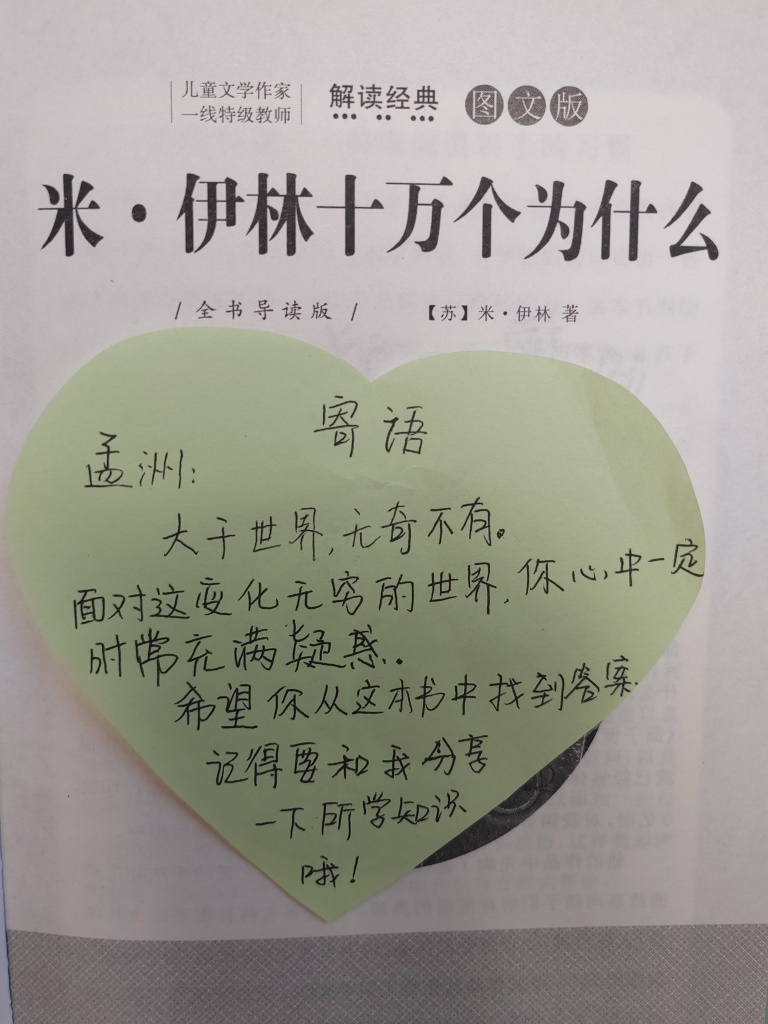 儿童文学作家
一线特级教师
解读经典
图文版
米·伊林十万个为什么
/ 全书导读版 /
【苏】米·伊林 著
寄语
孟洲：
大千世界，无奇不有。
面对这变化无穷的世界，你心中一定
时常充满疑惑。
希望你从这本书中找到答案.
记得要和我分享
一下所学知识
哦！